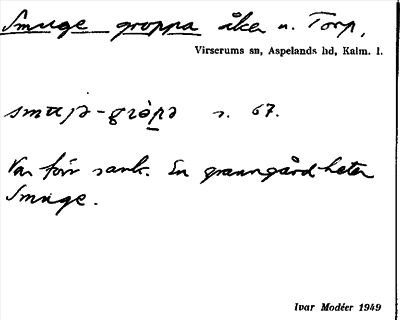 Smuge groppa åker u. Torp,
Virserums sn, Aspelands hd, Kalm. l.
smuja-gròpa s. 67.
Var förr sank. En granngård heter
Smuge.
Ivar Modéer 1949